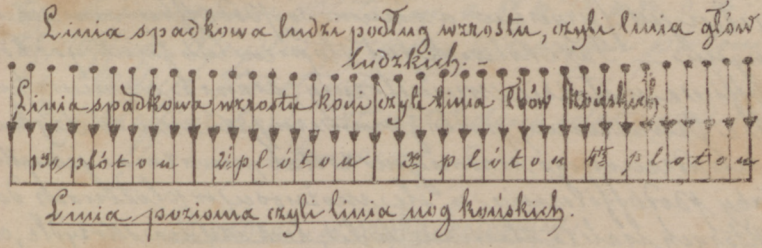 Linia spadkowa ludzi podług wzrostu, czyli linia głów
ludzkich. –
Linia spadkowa wzrostu koni czyli linia łbów końskich
1go plóton 2i plóton 3ci plóton 4ty ploton
Linia pozioma czyli linia nóg końskich.